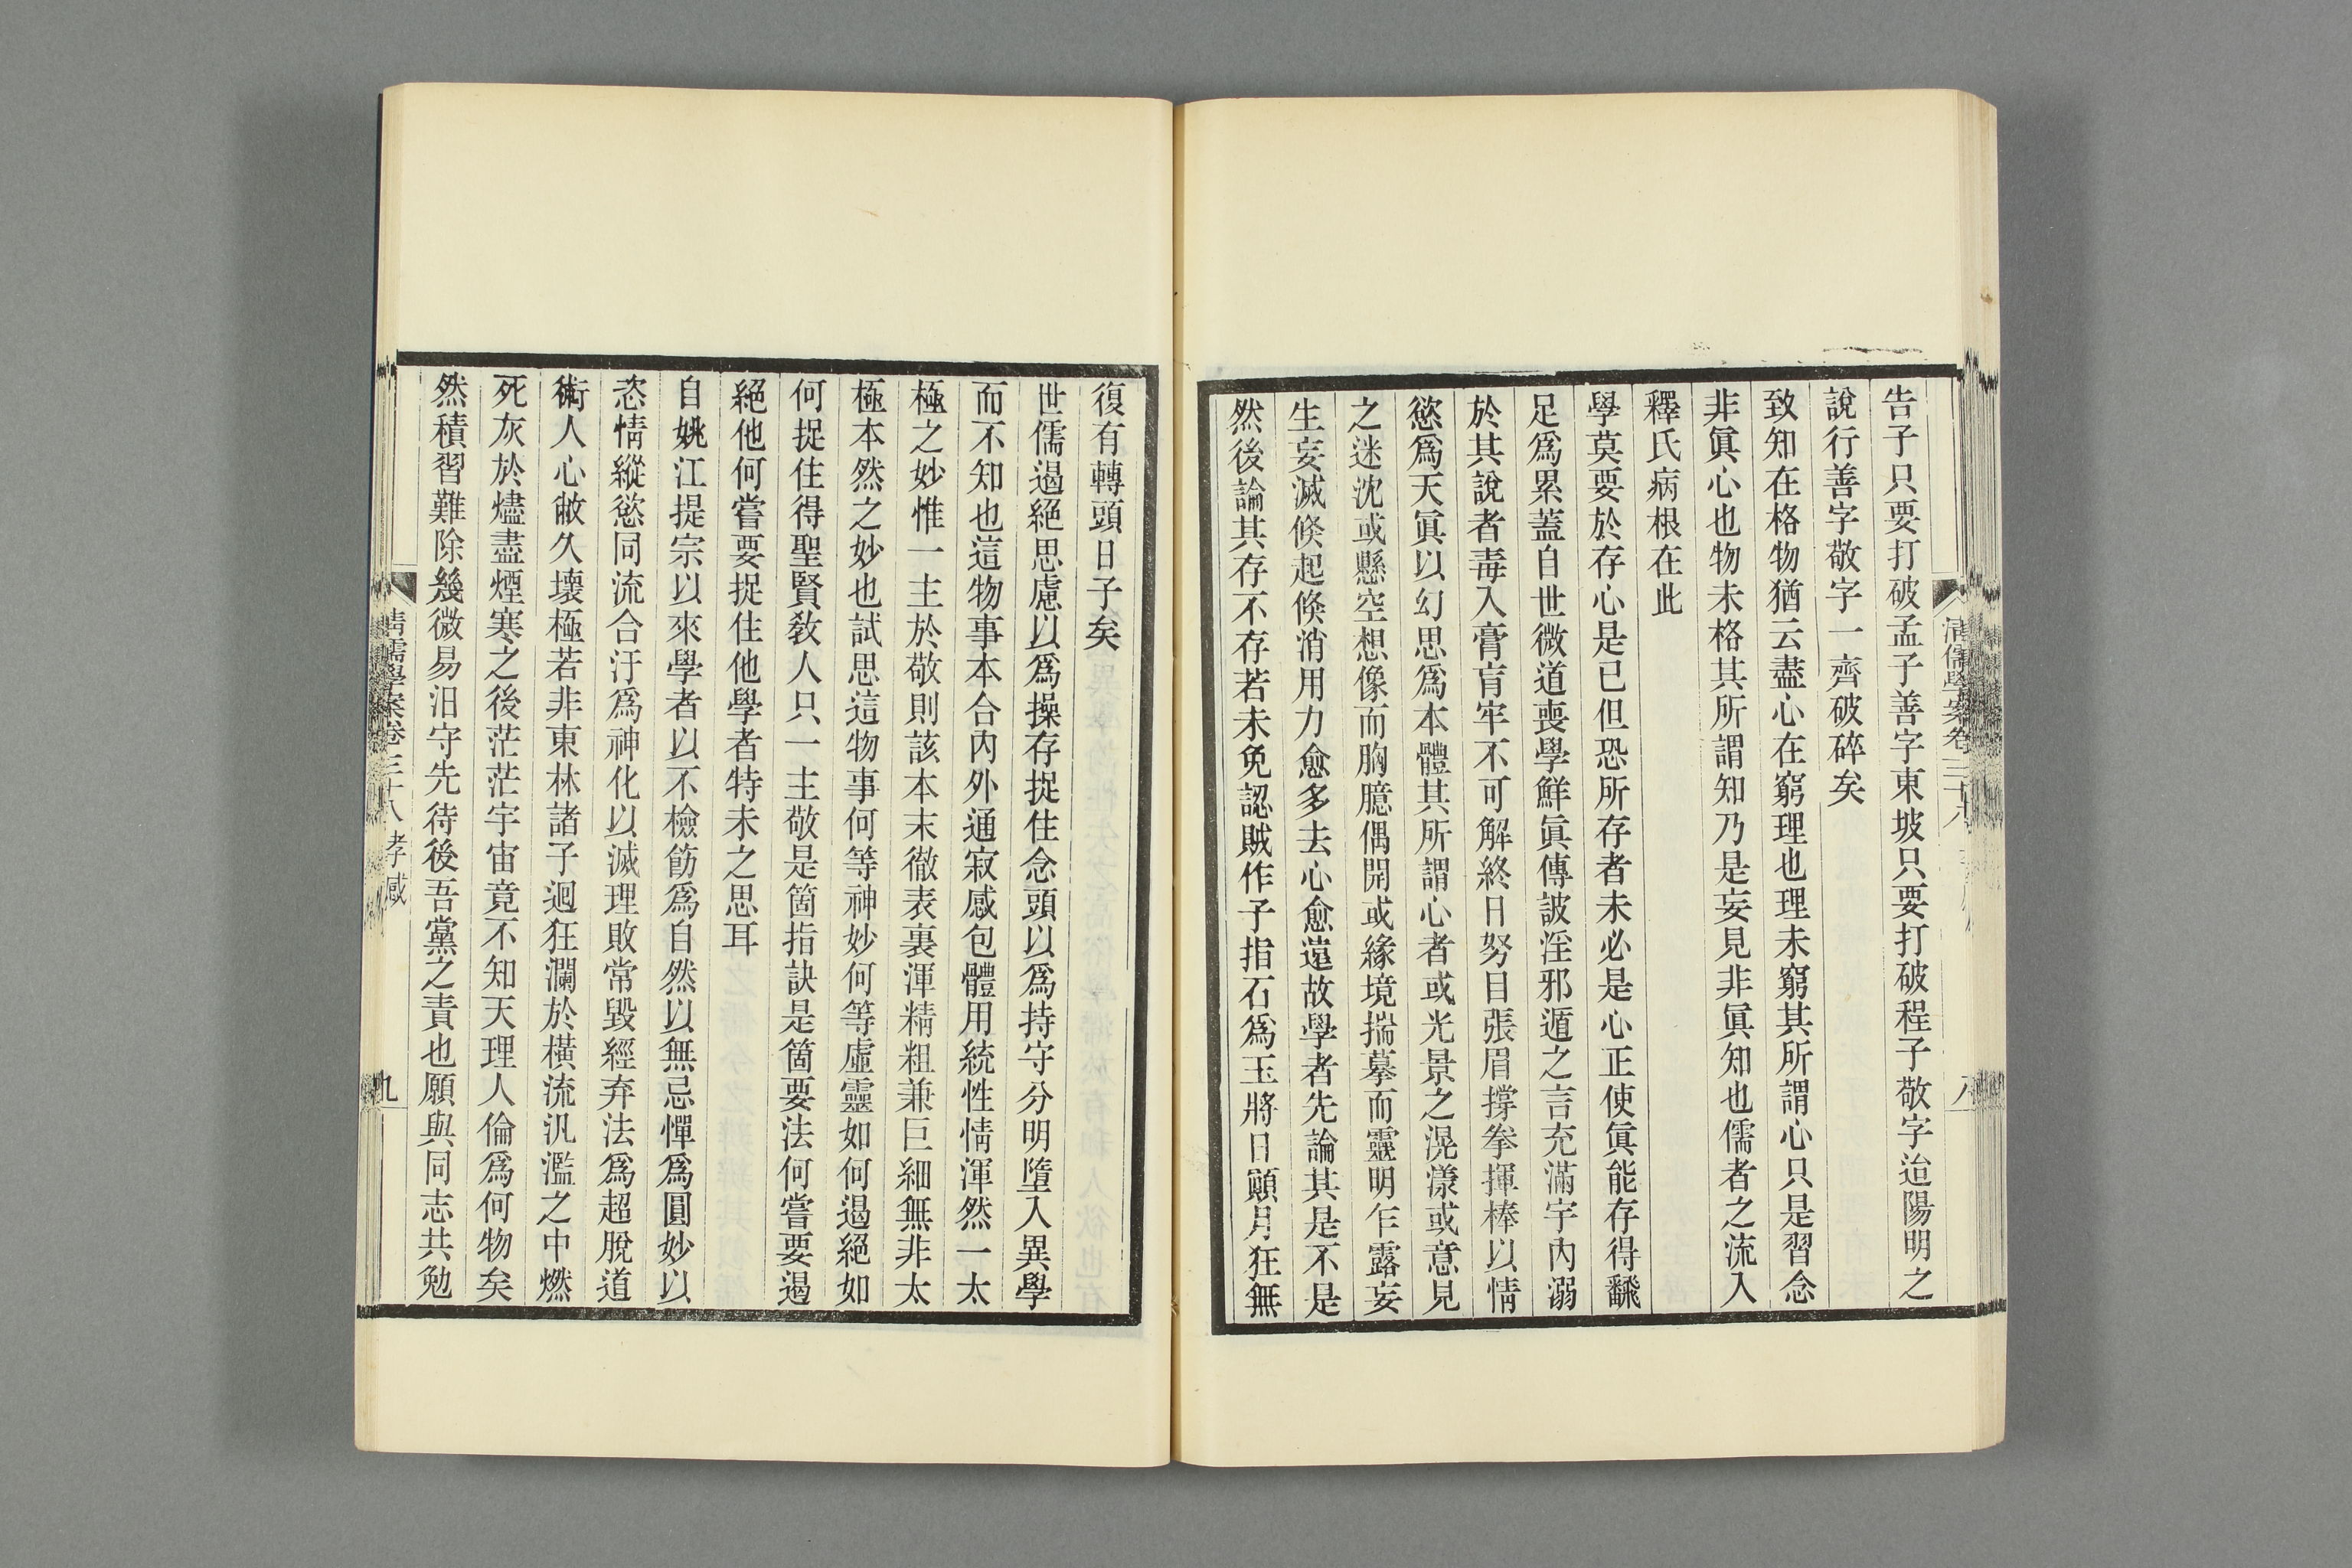 告子只要打破孟子善字東坡只要打破程子敬字迨陽明之
說行善字敬字一齊破碎矣
致知在格物猶云盡心在窮理也理未窮其所謂心只是習念
非眞心也物未格其所謂知乃是妄見非眞知也儒者之流入
釋氏病根在此
學莫要於存心是已但恐所存者未必是心正使眞能存得飜
足爲累蓋自世微道喪學鮮眞傳詖淫邪遁之言充滿宇內溺
於其說者毒入膏肓牢不可解終日努目張眉撐拳揮棒以情
慾爲天眞以幻思爲本體其所謂心者或光景之滉瀁或意見
之迷沈或懸空想像而胸臆偶開或緣境揣摹而靈明乍露妄
生妄滅倏起倏消用力愈多去心愈遠故學者先論其是不是
然後論其存不存若未免認賊作子指石爲玉將日顚月狂無
復有轉頭日子矣
世儒遏絕思慮以爲操存捉住念頭以爲持守分明墮入異學
而不知也這物事本合內外通寂感包體用統性情渾然一太
極之妙惟一主於敬則該本末徹表裏渾精粗兼巨細無非太
極本然之妙也試思這物事何等神妙何等虛靈如何遏絕如
何捉住得聖賢敎人只一主敬是箇指訣是箇要法何嘗要遏
絕他何嘗要捉住他學者特未之思耳
自姚江提宗以來學者以不檢飭爲自然以無忌憚爲圓妙以
恣情縱慾同流合汙爲神化以滅理敗常毀經弃法爲超脫道
術人心敝久壞極若非東林諸子迴狂瀾於橫流汎濫之中燃
死灰於燼盡煙寒之後茫茫宇宙竟不知天理人倫爲何物矣
然積習難除幾微易汨守先待後吾黨之責也願與同志共勉
清儒學案卷三十八 孝感
九
清儒學案卷三十八
八